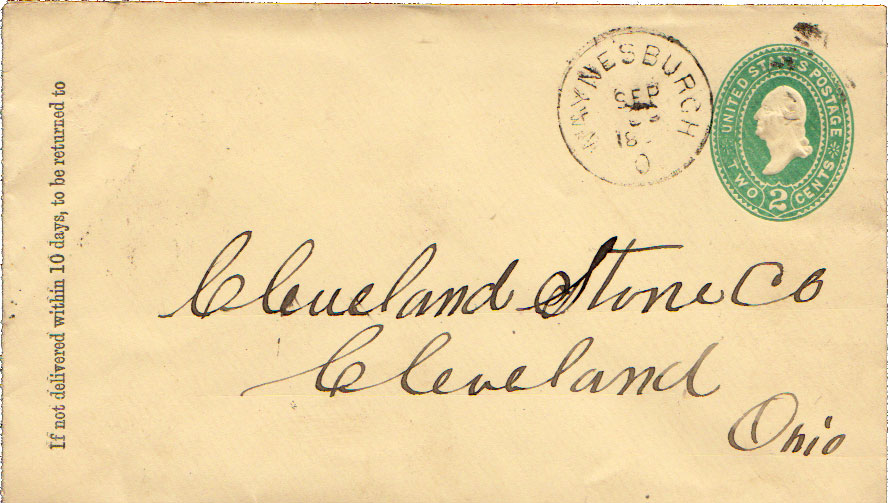 If not delivered within 10 days, to be returned to
WAYNESBURGH
SEP
18
O
UNITED STATES POSTAGE
TWO 2 CENTS
Cleveland Stone Co
Cleveland
Ohio